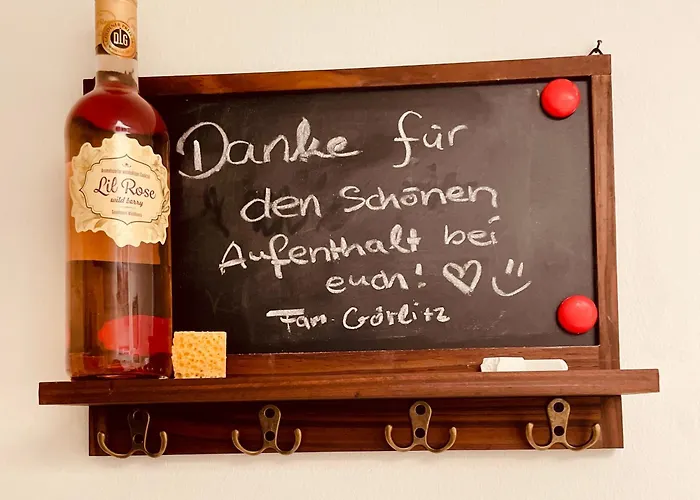 DLG
Lil Rose
wild berry
Danke für
den Schönen
Aufenthalt bei
euch! ♡ :)
Fam. Görlitz